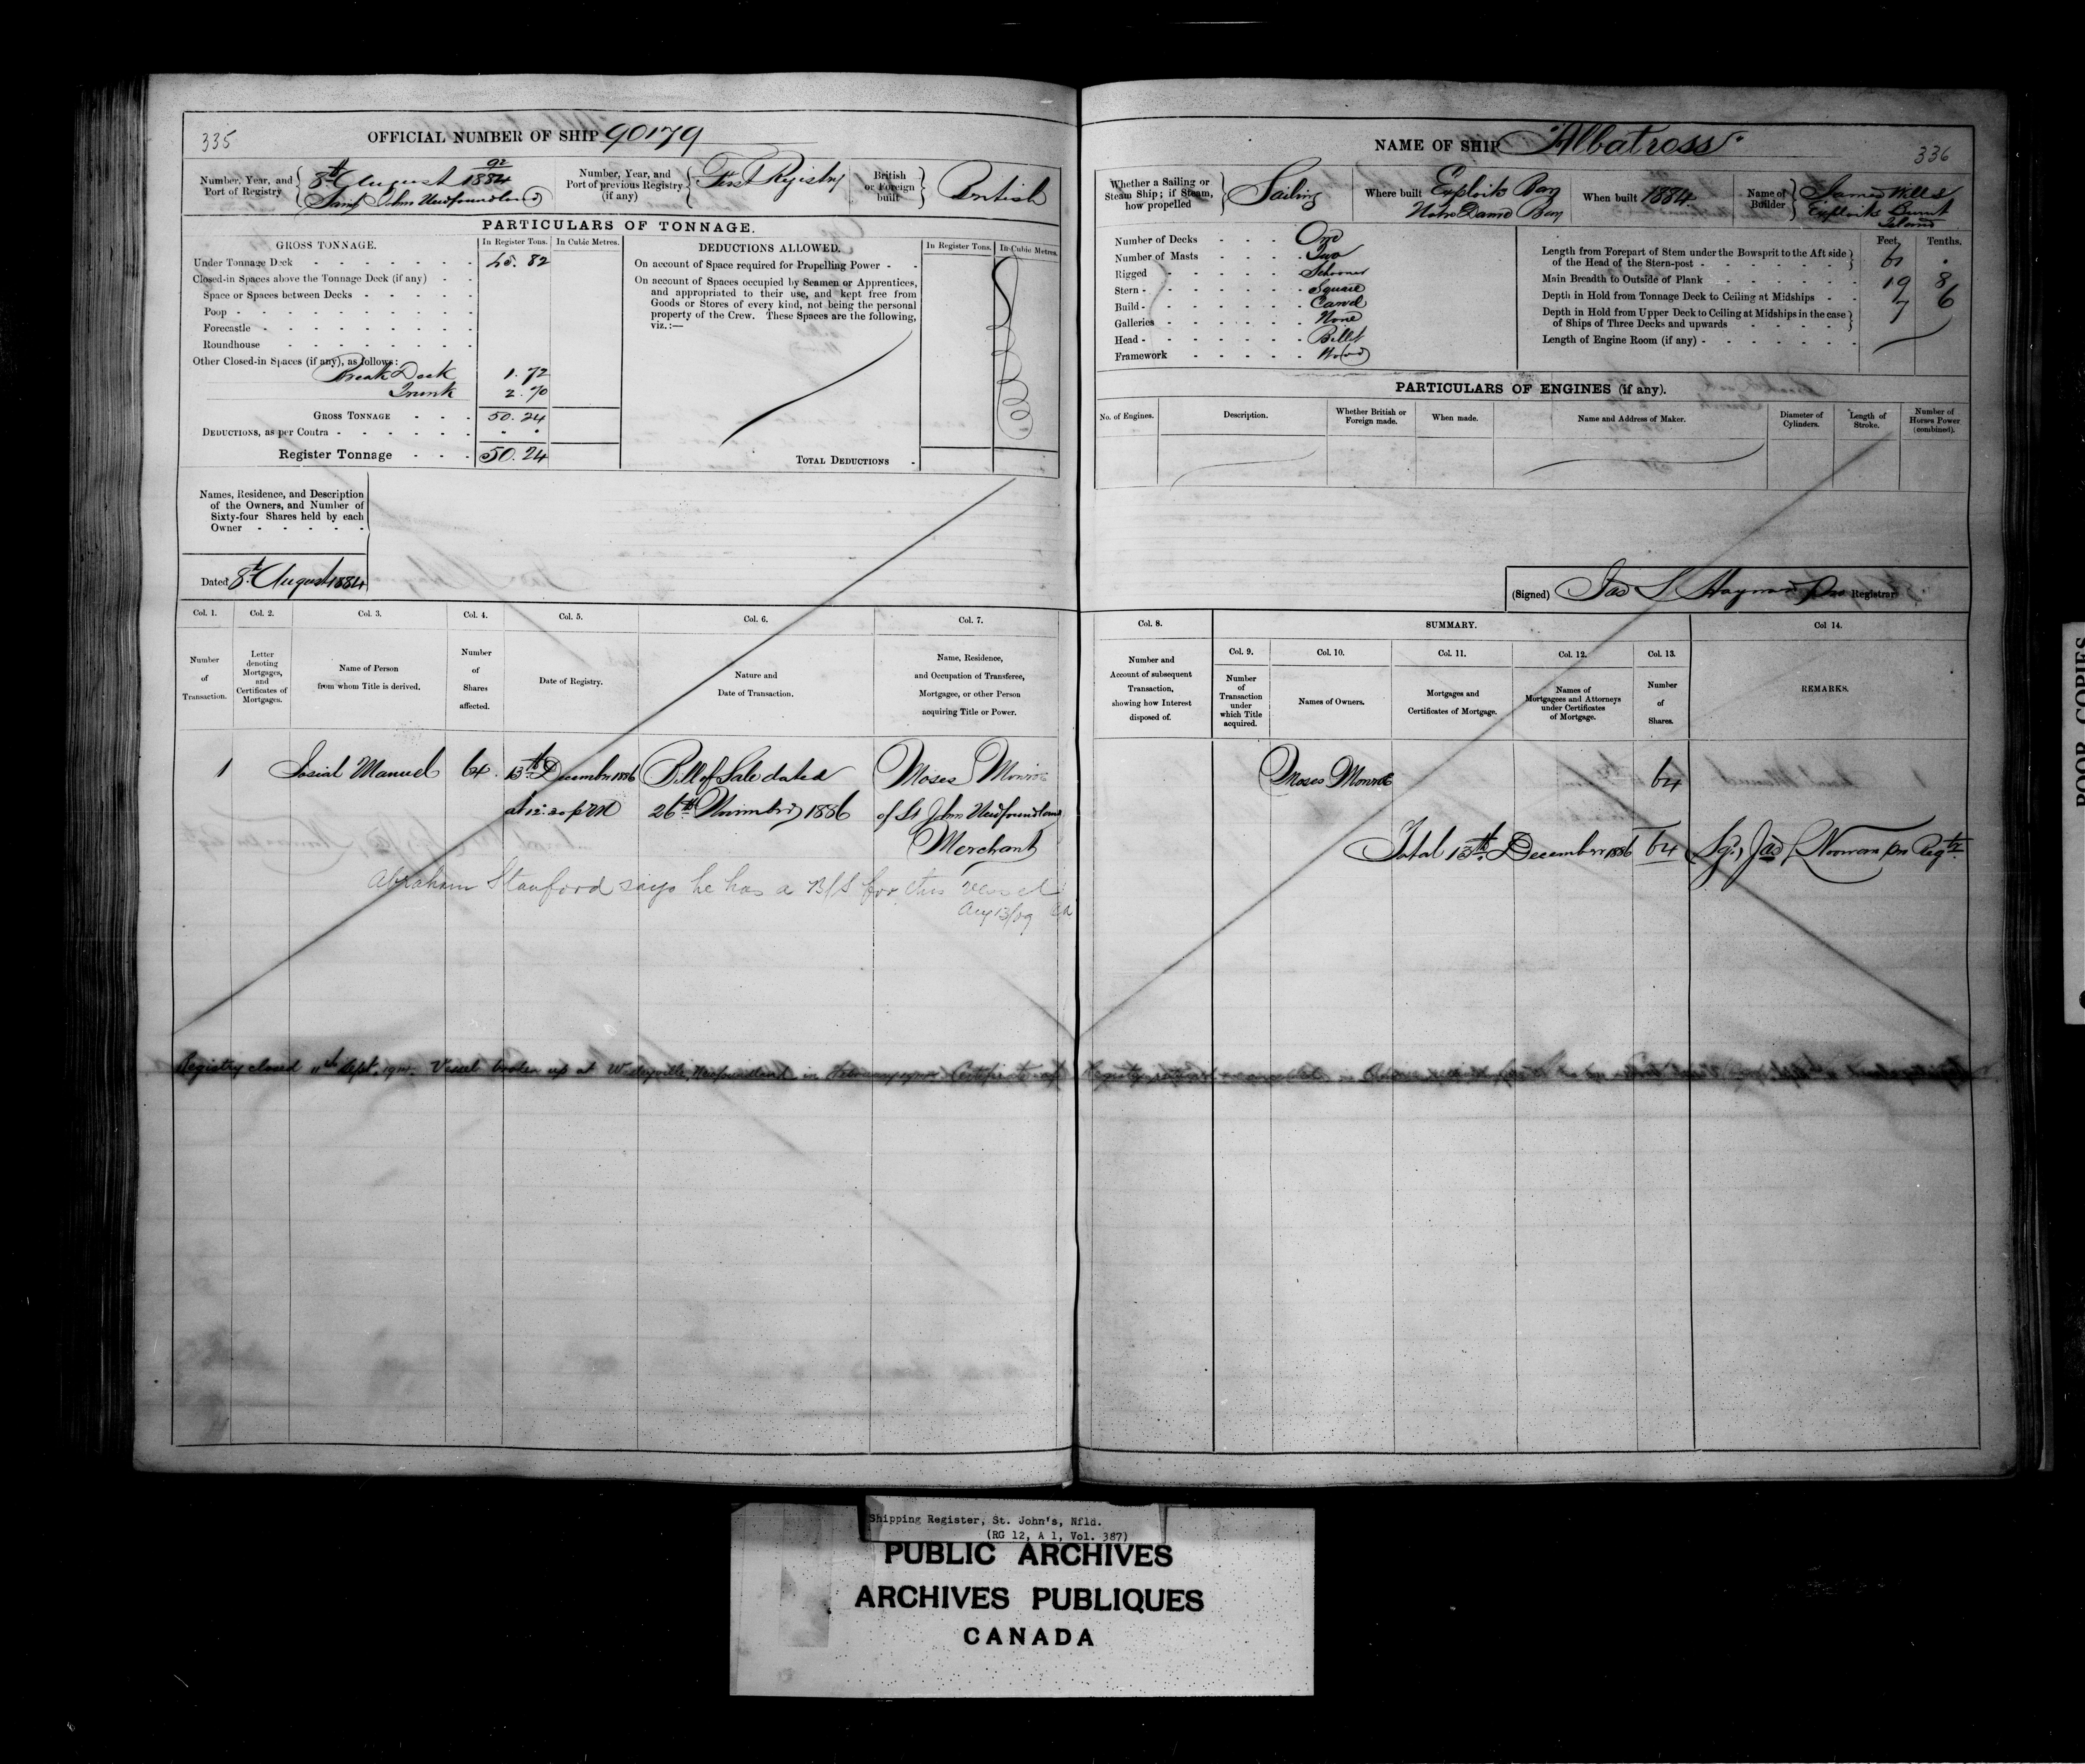 335
OFFICIAL NUMBER OF SHIP 90179
Number, Year, and Port of Registry
92
8th August 1884
Saint Johns Newfoundland
Number, Year, and Port of previous Registry (if any)
First Registry
British or Foreign built
British
PARTICULARS OF TONNAGE.
GROSS TONNAGE.
In Register Tons.
In Cubic Metres.
Under Tonnage Deck 45. 82
Closed-in Spaces above the Tonnage Deck (if any)
Space or Spaces between Decks
Poop
Forecastle
Roundhouse
Other Closed-in Spaces (if any), as follows:
Break Deck 1. 72
Trunk 2. 70
GROSS TONNAGE 50. 24
DEDUCTIONS, as per Contra
Register Tonnage 50. 24
DEDUCTIONS ALLOWED.
In Register Tons.
In Cubic Metres.
On account of Space required for Propelling Power
On account of Spaces occupied by Seamen or Apprentices,
and appropriated to their use, and kept free from
Goods or Stores of every kind, not being the personal
property of the Crew. These Spaces are the following,
viz.:—
TOTAL DEDUCTIONS
Names, Residence, and Description
of the Owners, and Number of
Sixty-four Shares held by each
Owner
Dated 8th August 1884
Col. 1.
Number of Transaction.
Col. 2.
Letter denoting Mortgages, and Certificates of Mortgages.
Col. 3.
Name of Person from whom Title is derived.
Col. 4.
Number of Shares affected.
Col. 5.
Date of Registry.
Col. 6.
Nature and Date of Transaction.
Col. 7.
Name, Residence, and Occupation of Transferee, Mortgagee, or other Person acquiring Title or Power.
1 Josiah Manuel 64 13th December 1886 Bill of Sale dated Moses Monroe
at 12.30 p m 26th November 1886 of St Johns Newfoundland
Merchant
Abraham Stanford says he has a B/S for this vessel
Aug 13/09
Registry closed 11th Sept. Vessel broken up at Wesleyville, Newfoundland in Certificate of
NAME OF SHIP Albatross
336
Whether a Sailing or Steam Ship; if Steam, how propelled
Sailing
Where built
Exploits Bay
Notre Dame Bay
When built 1884
Name of Builder
James Wells
Exploits Burnt
Island
Number of Decks One
Number of Masts Two
Rigged Schooner
Stern Square
Build Carvel
Galleries None
Head Billet
Framework Wood
Feet. Tenths.
Length from Forepart of Stem under the Bowsprit to the Aft side
of the Head of the Stern-post 61 .
Main Breadth to Outside of Plank 19 8
Depth in Hold from Tonnage Deck to Ceiling at Midships 7 6
Depth in Hold from Upper Deck to Ceiling at Midships in the case
of Ships of Three Decks and upwards
Length of Engine Room (if any)
PARTICULARS OF ENGINES (if any).
No. of Engines.
Description.
Whether British or Foreign made.
When made.
Name and Address of Maker.
Diameter of Cylinders.
Length of Stroke.
Number of Horses Power (combined).
(Signed) Jas L Hayward Pro Registrar
Col. 8.
Number and Account of subsequent Transaction, showing how Interest disposed of.
SUMMARY.
Col. 9.
Number of Transaction under which Title acquired.
Col. 10.
Names of Owners.
Col. 11.
Mortgages and Certificates of Mortgage.
Col. 12.
Names of Mortgagees and Attorneys under Certificates of Mortgage.
Col. 13.
Number of Shares.
Col 14.
REMARKS.
Moses Monroe 64
Total 13th December 1886 64
POOR COPIES
Shipping Register, St. John's, Nfld.
(RG 12, A 1, Vol. 387)
PUBLIC ARCHIVES
ARCHIVES PUBLIQUES
CANADA